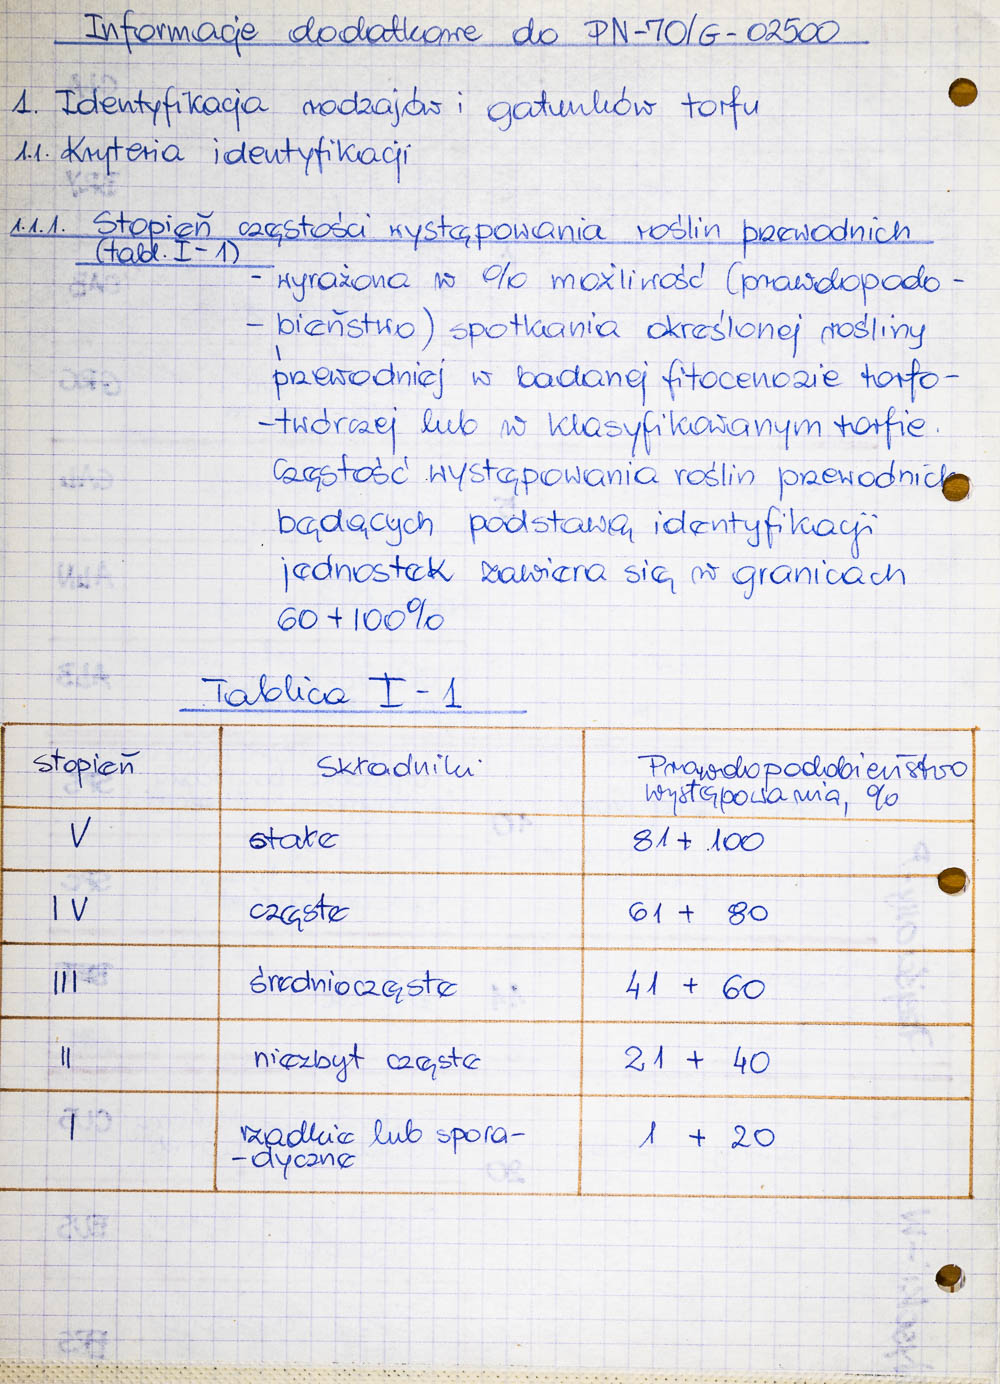 Informacje dodatkowe do PN-70/G-02500
1. Identyfikacja rodzajów i gatunków torfu
1.1. Kryteria identyfikacji
1.1.1. Stopień częstości występowania roślin przewodnich
(tabl. I-1)
- wyrażona w % możliwość (prawdopodo-
- bieństwo) spotkania określonej rośliny
przewodniej w badanej fitocenozie torfo-
-twórczej lub w klasyfikowanym torfie.
Częstość występowania roślin przewodnich
będących podstawą identyfikacji
jednostek zawiera się w granicach
60 + 100%
Tablica I-1
Stopień Składniki Prawdopodobieństwo
występowania, %
V stałe 81 + 100
IV częste 61 + 80
III średnioczęste 41 + 60
II niezbyt częste 21 + 40
I rzadkie lub spora- 1 + 20
-dyczne